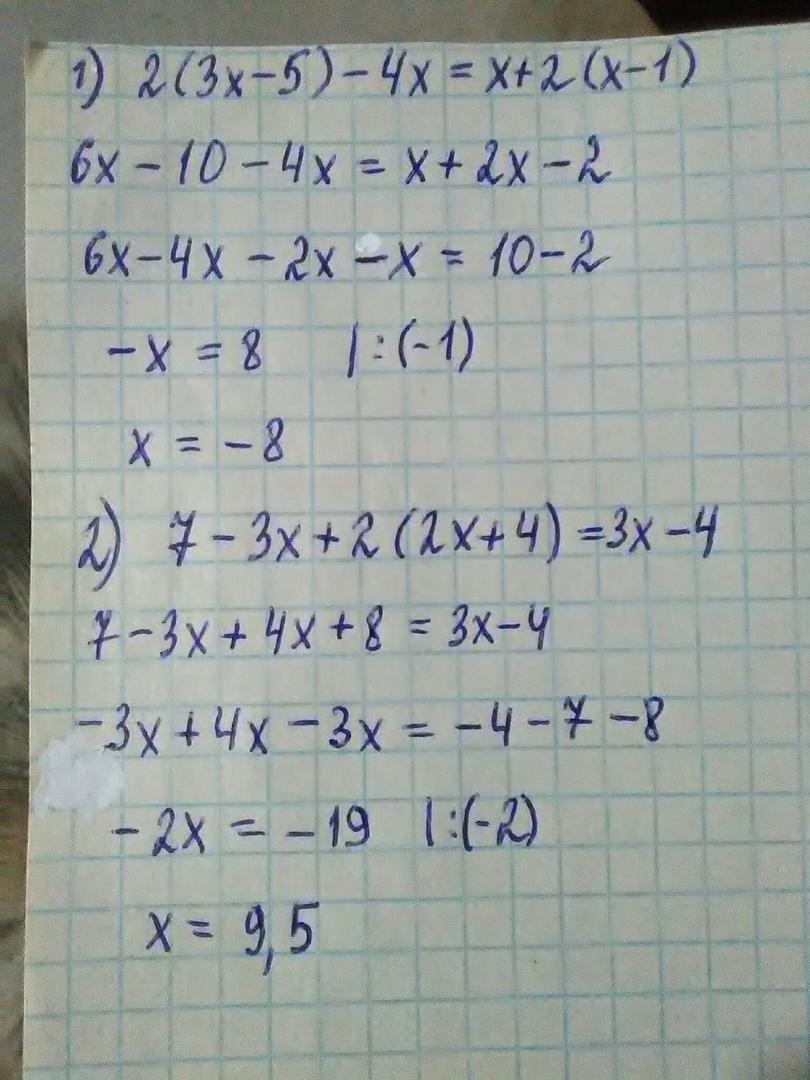 1) 2(3x-5)-4x=x+2(x-1)
6x-10-4x=x+2x-2
6x-4x-2x-x=10-2
-x=8 |:(-1)
x=-8
2) 7-3x+2(2x+4)=3x-4
7-3x+4x+8=3x-4
-3x+4x-3x=-4-7-8
-2x=-19 |:(-2)
x=9,5